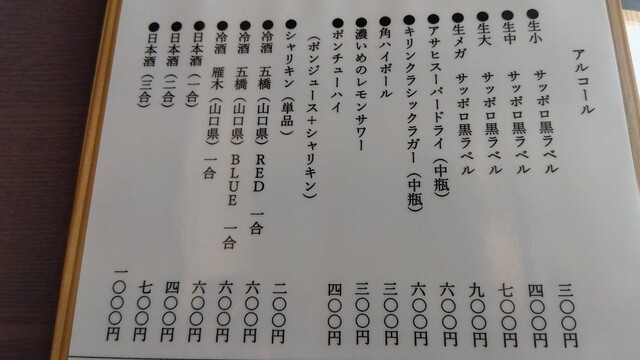 アルコール
●生小　サッポロ黒ラベル　三〇〇円
●生中　サッポロ黒ラベル　四〇〇円
●生大　サッポロ黒ラベル　七〇〇円
●生メガ　サッポロ黒ラベル　九〇〇円
●アサヒスーパードライ（中瓶）　六〇〇円
●キリンクラシックラガー（中瓶）　六〇〇円
●角ハイボール　三〇〇円
●濃いめのレモンサワー　三〇〇円
●ポンチューハイ　四〇〇円
（ポンジュース＋シャリキン）
●シャリキン（単品）　二〇〇円
●冷酒　五橋（山口県）RED　一合　六〇〇円
●冷酒　五橋（山口県）BLUE　一合　六〇〇円
●冷酒　雁木（山口県）一合　六〇〇円
●日本酒（一合）　四〇〇円
●日本酒（二合）　七〇〇円
●日本酒（三合）　一〇〇〇円